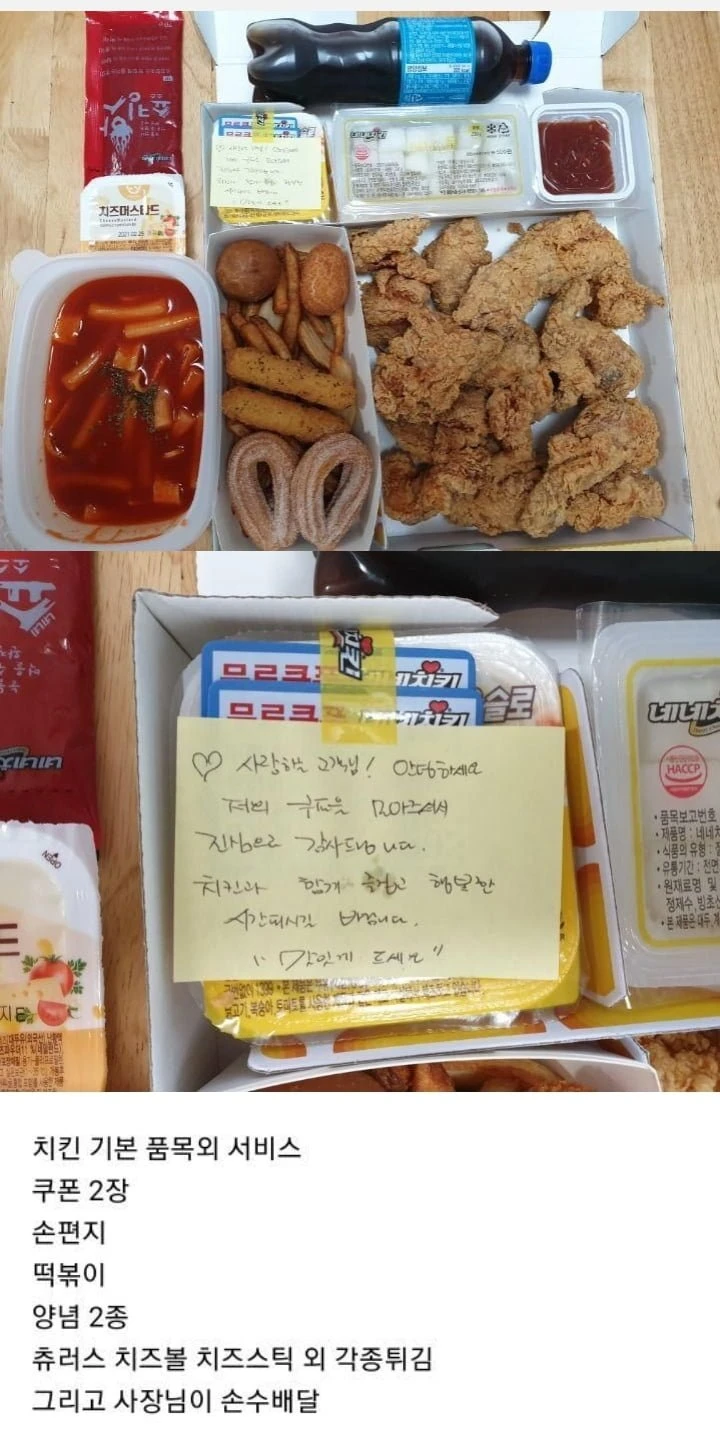 치즈머스타드
네네치킨
무료쿠폰
네네치킨
무료쿠폰
네네치킨
슬로
♡ 사랑하는 고객님! 안녕하세요
저희 쿠폰을 모아주셔서
진심으로 감사드립니다.
치킨과 함께 즐겁고 행복한
시간되시길 바랍니다.
"맛있게 드세요"
OPEN
네네치
HACCP
•품목보고번호
•제품명 : 네네치
•식품의 유형 : 절
•유통기간 : 전면
•원재료명 및
정제수, 빙초산
•본 제품은 대두,
치킨 기본 품목외 서비스
쿠폰 2장
손편지
떡볶이
양념 2종
츄러스 치즈볼 치즈스틱 외 각종튀김
그리고 사장님이 손수배달